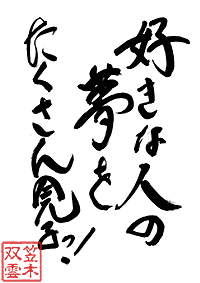 好きな人の
夢を
たくさん見るっ!
笠木
双雲